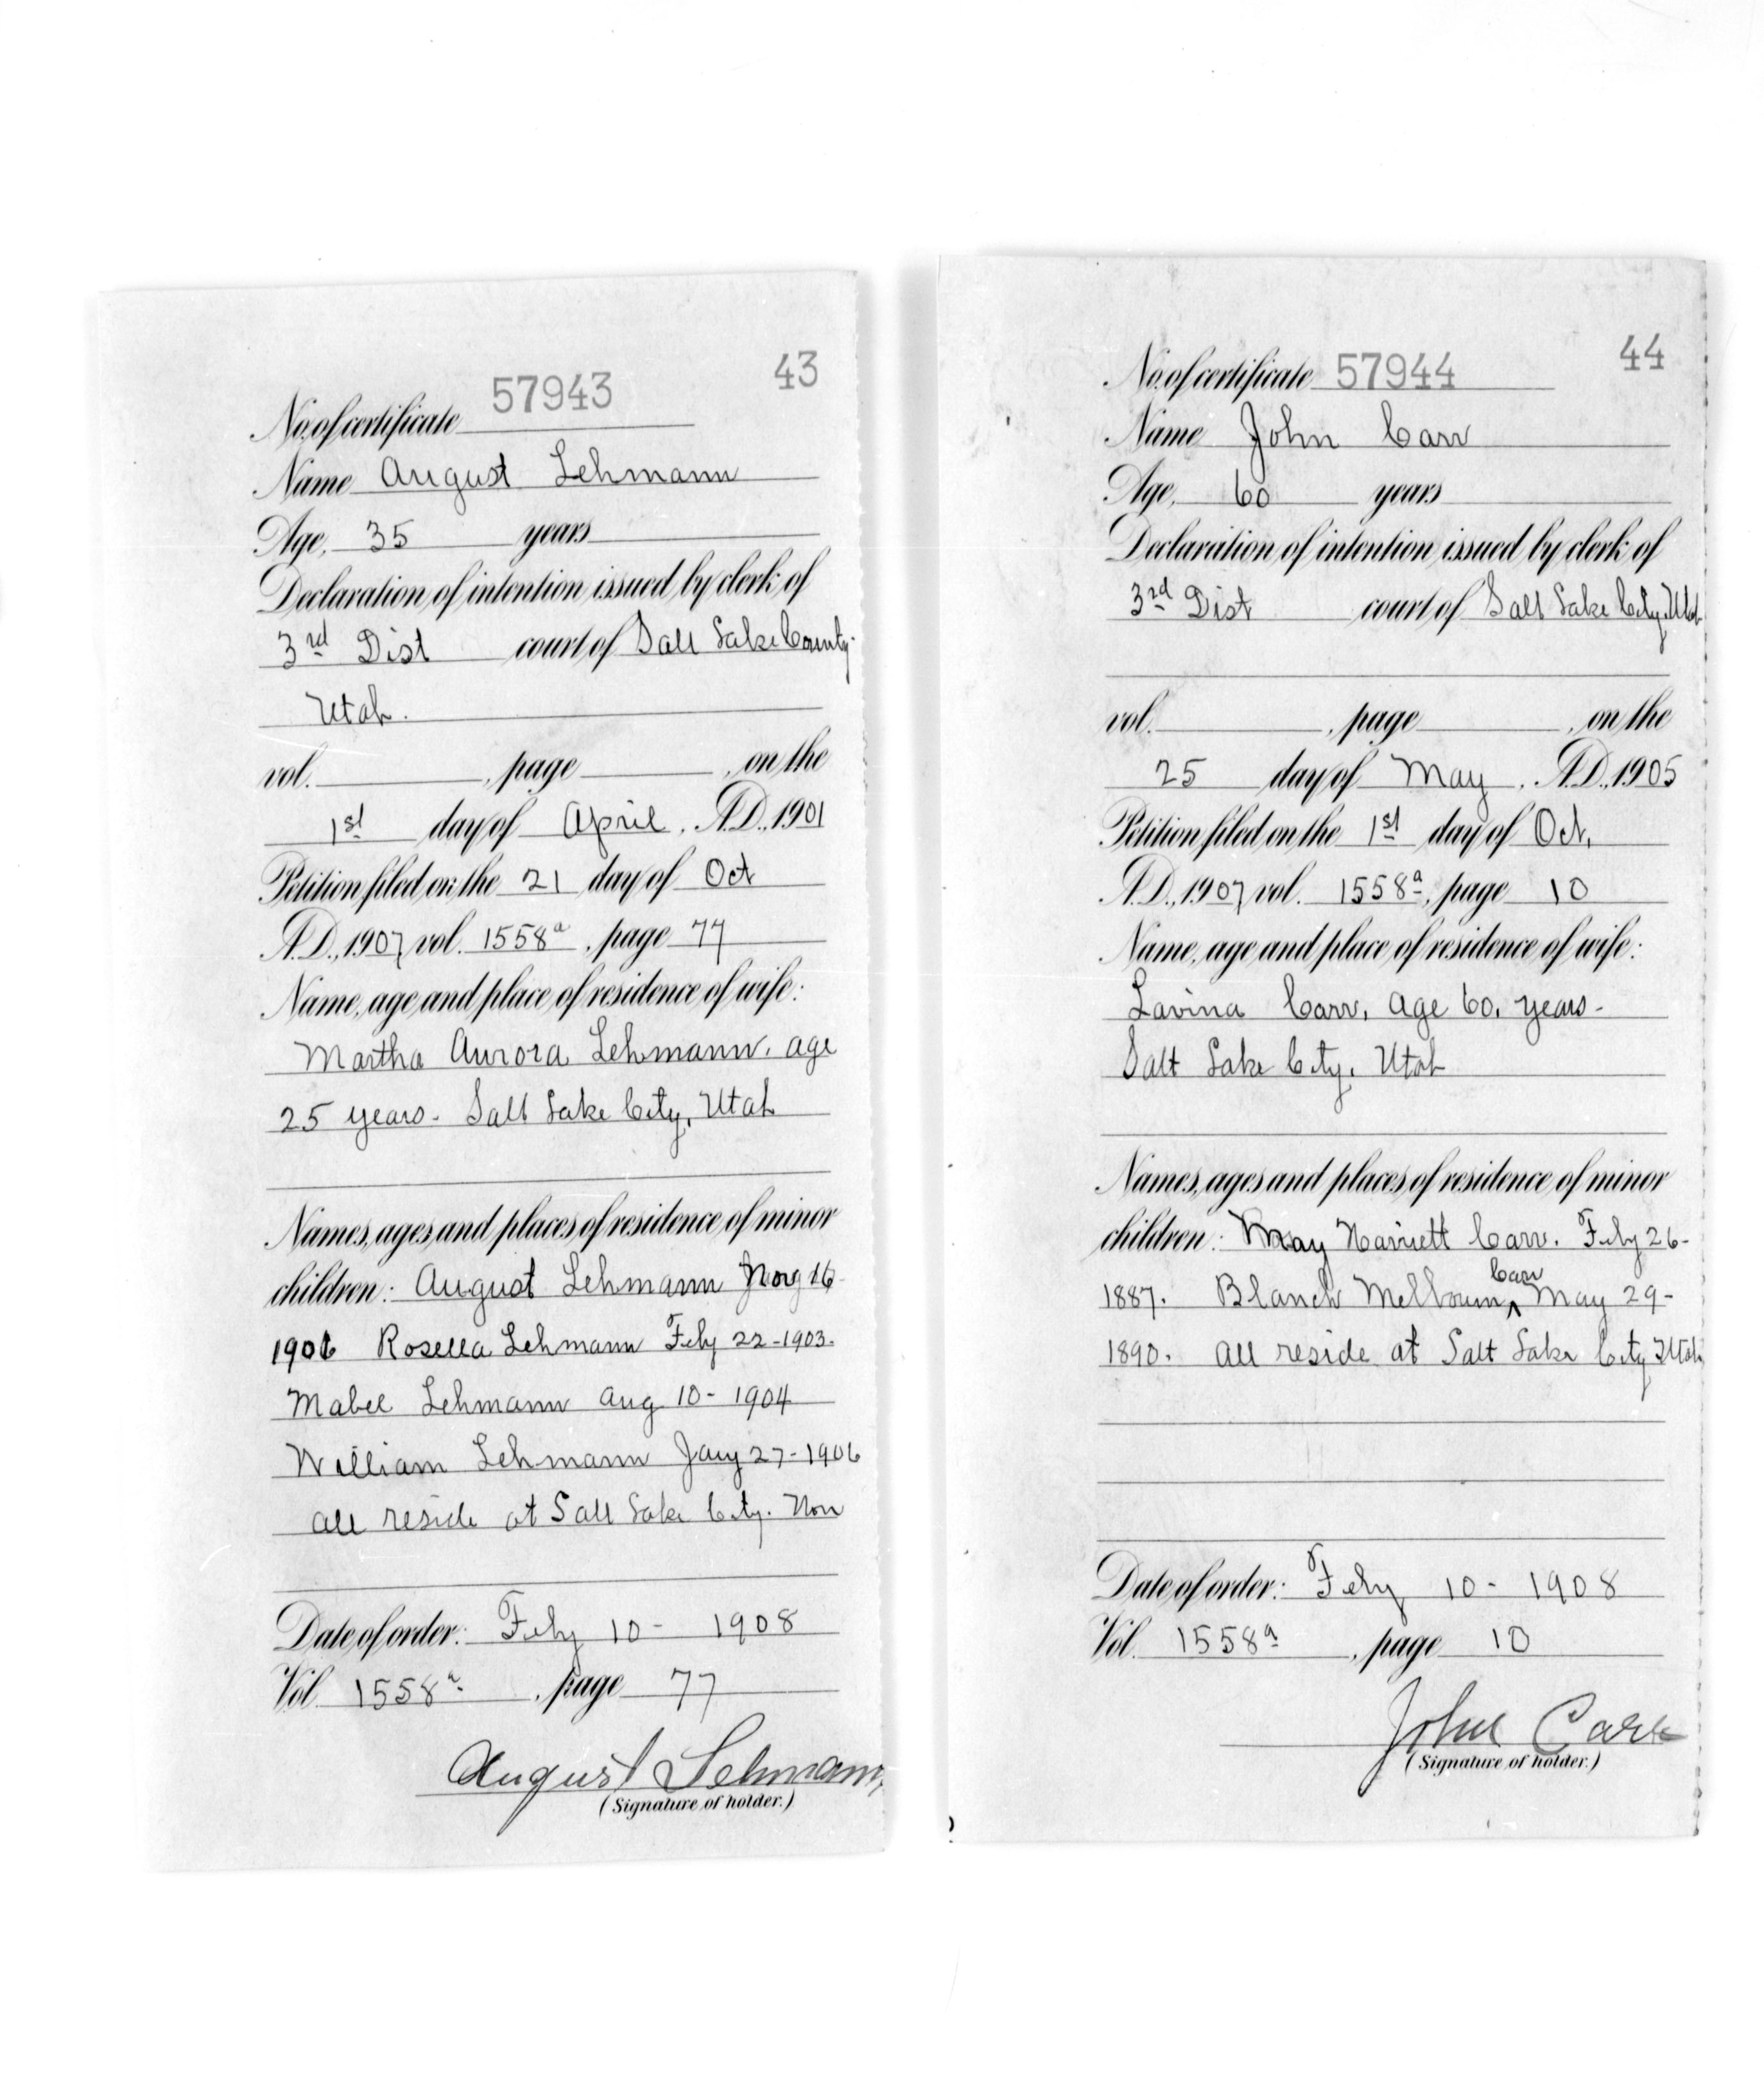 43
No. of certificate 57943
Name August Lehmann
Age, 35 years
Declaration of intention issued by clerk of
3rd Dist court of Salt Lake County
Utah.
vol. , page , on the
1st day of April, A.D., 1901
Petition filed on the 21 day of Oct
A.D., 1907 vol. 1558a, page 77
Name, age and place of residence of wife:
Martha Aurora Lehmann. age
25 years - Salt Lake City, Utah
Names, ages and places of residence of minor
children: August Lehmann 16
Rosella Lehmann Feby 22-1903.
Mabel Lehmann Aug 10 - 1904
William Lehmann Jany 27-1906
all reside at Salt Lake City.
Date of order: Feby 10 - 1908
Vol 1558a, page 77
August Lehmann
(Signature of holder.)
44
No. of certificate 57944
Name John Carr
Age, 60 years
Declaration of intention issued by clerk of
3rd Dist court of Salt Lake City, Utah
vol. , page , on the
25 day of May, A.D., 1905
Petition filed on the 1st day of Oct,
A.D., 1907 vol. 1558a, page 10
Name, age and place of residence of wife:
Lavina Carr, age 60, years -
Salt Lake City, Utah
Names, ages and places of residence of minor
children: May Harriett Carr. Feby 26 -
1887. Blanch Melbourn Carr May 29 -
1890. all reside at Salt Lake City Utah
Date of order: Feby 10 - 1908
Vol. 1558a, page 10
John Carr
(Signature of holder.)